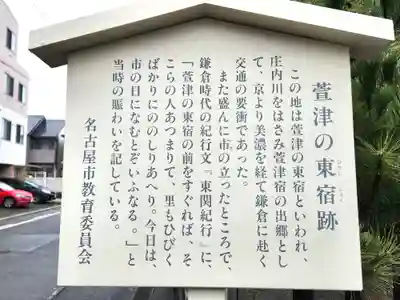 萱津の東宿跡
ひがし しゅく
この地は萱津の東宿といわれ、
庄内川をはさみ萱津宿の出郷とし
て、京より美濃を経て鎌倉に赴く
交通の要衝であった。
また盛んに市の立ったところで、
鎌倉時代の紀行文『東関紀行』に、
「萱津の東宿の前をすぐれば、そ
こらの人あつまりて、里もひびく
ばかりにののしりあへり。今日は、
市の日になむとぞいふなる。」と
当時の賑わいを記している。
名古屋市教育委員会